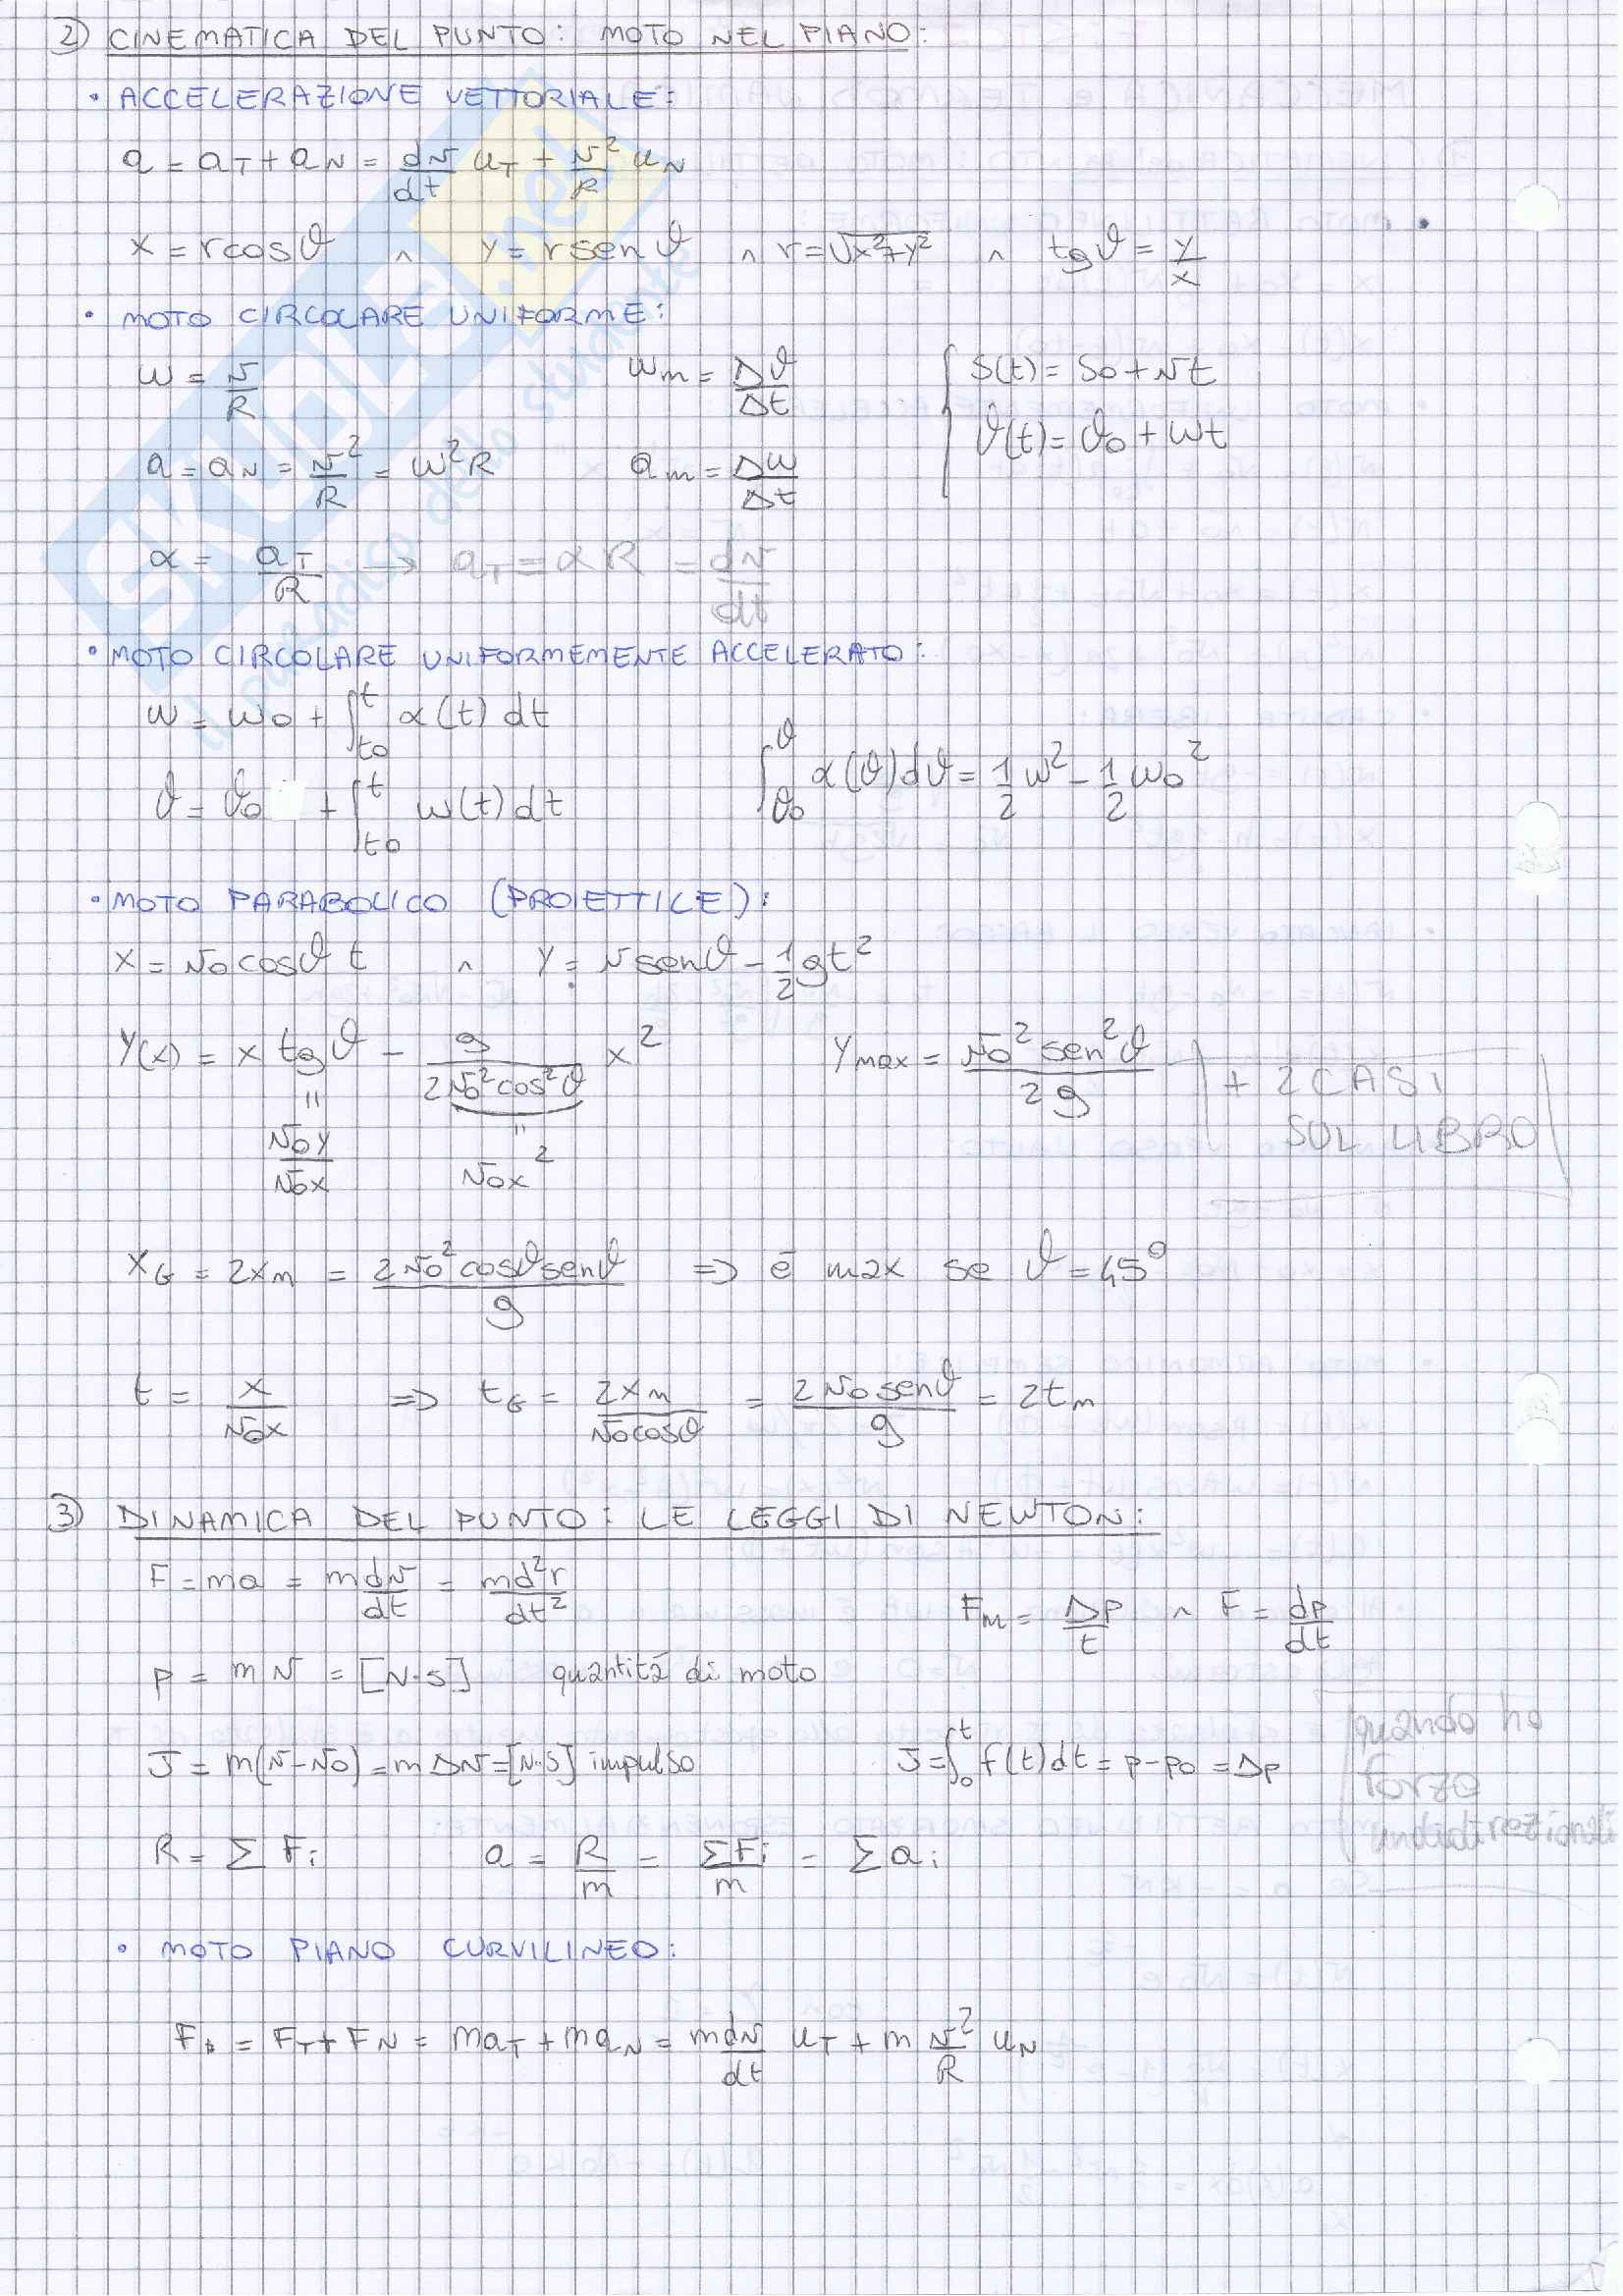 2) CINEMATICA DEL PUNTO: MOTO NEL PIANO:
• ACCELERAZIONE VETTORIALE:
a = a_T + a_N = dv/dt u_T + v²/R u_N
x = r cosϑ ∧ y = r senϑ ∧ r = √x²+y² ∧ tgϑ = y/x
• MOTO CIRCOLARE UNIFORME:
ω = v/R ω_m = Δϑ/Δt { S(t) = S0 + vt
ϑ(t) = ϑ0 + ωt
a = a_N = v²/R = ω²R a_m = Δω/Δt
α = a_T/R → a_T = αR = dv/dt
• MOTO CIRCOLARE UNIFORMEMENTE ACCELERATO:
ω = ω0 + ∫_t0^t α(t) dt
∫_ϑ0^ϑ α(ϑ)dϑ = 1/2 ω² - 1/2 ω0²
ϑ = ϑ0 + ∫_t0^t ω(t) dt
• MOTO PARABOLICO (PROIETTILE):
x = v0 cosϑ t ∧ y = v senϑ - 1/2 gt²
y(x) = x tgϑ - g/(2v0²cos²ϑ) x² y_max = v0² sen²ϑ/2g + 2 CASI
SUL LIBRO
= v0y/v0x = v0x²
x_G = 2x_m = 2v0² cosϑ senϑ/g ⇒ è max se ϑ = 45°
t = x/v0x ⇒ t_G = 2x_m/(v0 cosϑ) = 2v0 senϑ/g = 2t_m
3) DINAMICA DEL PUNTO: LE LEGGI DI NEWTON:
F = ma = m dv/dt = md²r/dt²
F_m = Δp/t ∧ F = dp/dt
p = mv = [N·s] quantità di moto
J = m(v-v0) = mΔv = [N·s] impulso J = ∫_0^t f(t)dt = p-p0 = Δp
quando ho
forze
unidirezionali
R = Σ F_i a = R/m = ΣF_i/m = Σ a_i
• MOTO PIANO CURVILINEO:
= F_T + F_N = ma_T + ma_N = m dv/dt u_T + m v²/R u_N
SKUOLA.net
il paradiso dello studente